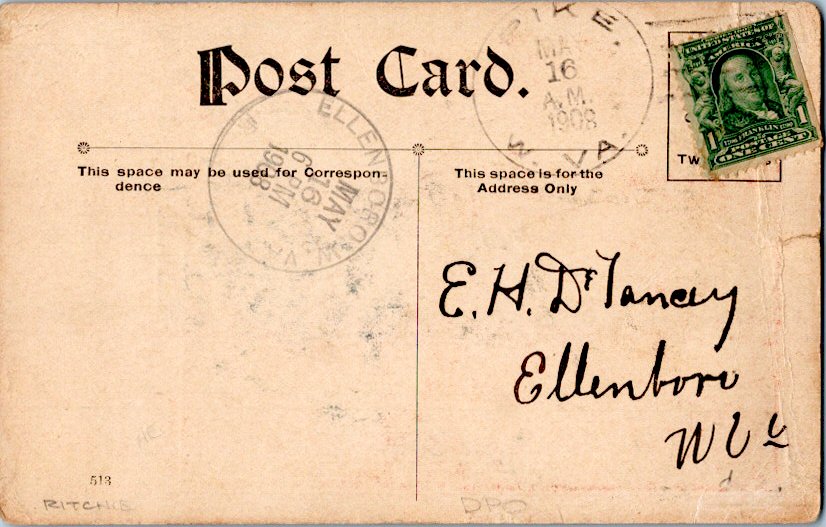 Post Card.
PIKE,
MAY
16
A.M.
1908
W. VA.
UNITED STATES OF
AMERICA
FRANKLIN
1 POSTAGE 1
ONE CENT
ELLENBORO, W. VA.
MAY
16
6 PM
1908
This space may be used for Correspon-
dence
This space is for the
Address Only
E. H.
Ellenboro
W Va
513
RITCHIE
DPO